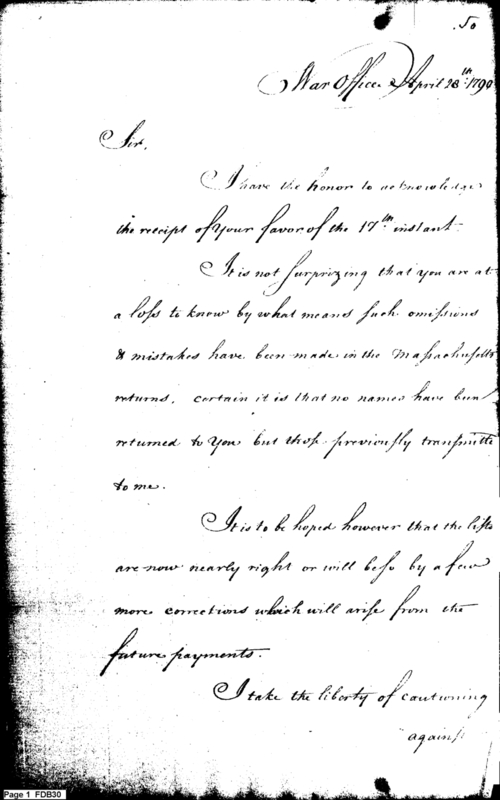 50
War Office April 28th. 1790
Sir,
I have the honor to acknowledge
the receipt of your favor of the 17th. instant
It is not surprizing that you are at
a loss to know by what means such omissions
& mistakes have been made in the Massachusetts
returns, certain it is that no names have been
returned to you but those previously transmitte
to me.
It is to be hoped however that the lists
are now nearly right or will be so by a few
more corrections which will arise from the
future payments.
I take the liberty of cautioning
against
Page 1 FDB30